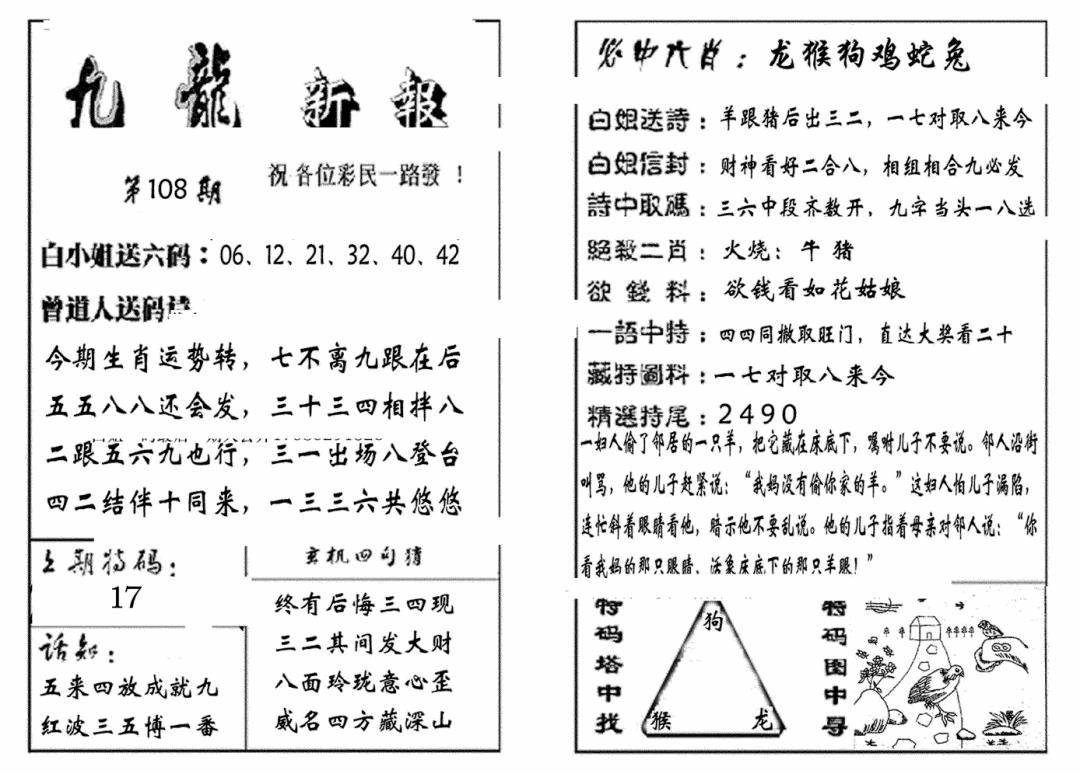 九龍新報
第108期
祝各位彩民一路發！
白小姐送六码：06、12、21、32、40、42
曾道人送码诗
今期生肖运势转，七不离九跟在后
五五八八还会发，三十三四相拌八
二跟五六九也行，三一出场八登台
四二结伴十同来，一三三六共悠悠
上期特码：
17
话知：
五来四放成就九
红波三五博一番
玄机四句猜
终有后悔三四现
三二其间发大财
八面玲珑意心歪
威名四方藏深山
必中六肖：龙猴狗鸡蛇兔
白姐送詩：羊跟猪后出三二，一七对取八来今
白姐信封：财神看好二合八，相组相合九必发
詩中取碼：三六中段齐数开，九字当头一八选
絕殺二肖：火烧：牛猪
欲錢料：欲钱看如花姑娘
一語中特：四四同撤取旺门，直达大奖看二十
藏特圖料：一七对取八来今
精選特尾：2490
一妇人偷了邻居的一只羊，把它藏在床底下，嘱咐儿子不要说。邻人沿街
叫骂，他的儿子赶紧说：“我妈没有偷你家的羊。”这妇人怕儿子漏陷，
连忙斜着眼睛看他，暗示他不要乱说。他的儿子指着母亲对邻人说：“你
看我妈的那只眼睛，活象床底下的那只羊眼！”
特码塔中找
狗
猴
龙
特码图中寻